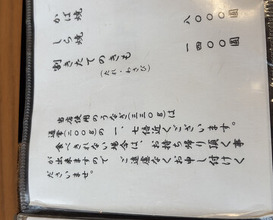 かば焼　八〇〇〇圓
しら焼
割きたてのきも　一四〇〇圓
(たれ・わさび)
当店使用のうなぎ(三三〇g)は
通常(二〇〇g)の一.七倍近くございます。
食べきれない場合は、お持ち帰り頂く事
が出来ますので、ご遠慮なくお申し付けく
ださいませ。